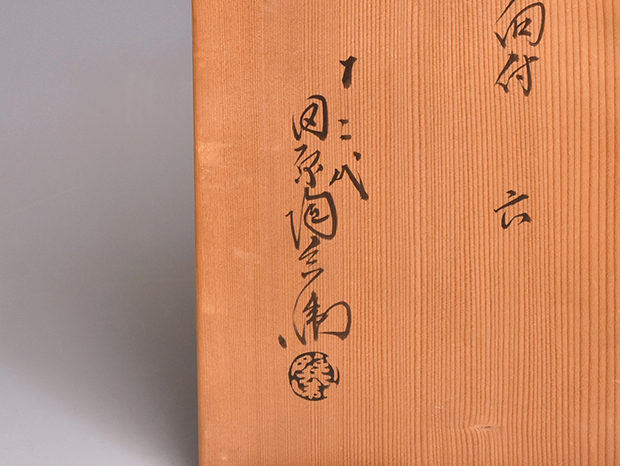 向付
六
十二代
田原陶兵衛